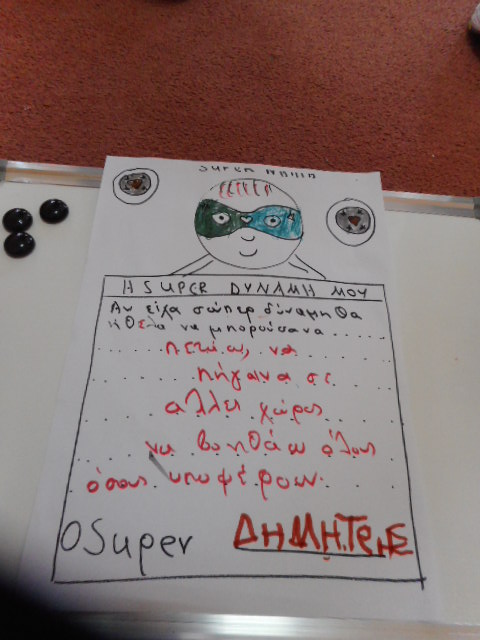 SUPER
Η SUPER DYNAMH MOY
Αν είχα σούπερ δύναμη θα
ήθελα να μπορούσα να
πετάω, να
πήγαινα σε
άλλες χώρες
να βοηθάω όλους
όσους υποφέρουν.
Ο Super ΔΗΜΗΤΡΗΣ